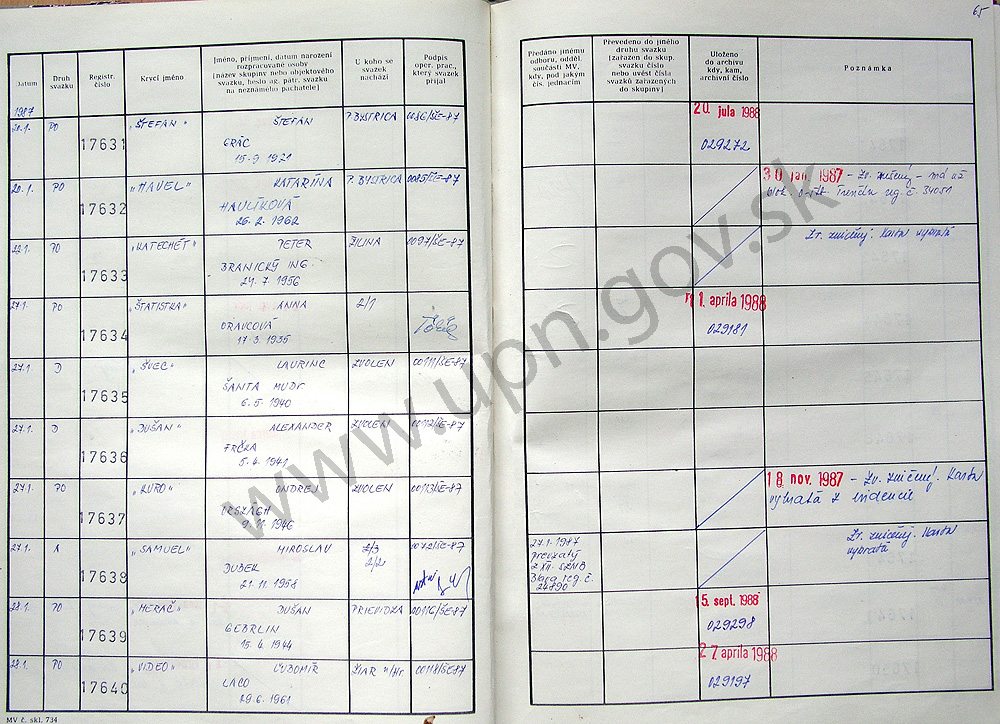 65
Datum
Druh svazku
Registr. číslo
Krycí jméno
Jméno, příjmení, datum narození
rozpracované osoby
(název skupiny nebo objektového
svazku, heslo ag. pátr. svazku
na neznámého pachatele)
U koho se
svazek
nachází
Podpis
oper. prac.,
který svazek
přijal
Předáno jinému
odboru, odděl.
součásti MV,
kdy, pod jakým
čís. jednacím
Převedeno do jiného
druhu svazku
(zařazen do skup.
svazku číslo
nebo uvést čísla
svazků zařazených
do skupiny)
Uloženo
do archivu
kdy, kam,
archivní číslo
Poznámka
1987
20.1. PO 17631 "ŠTEFAN" ŠTEFAN P. BYSTRICA 0086/ŠE-87 20. júla 1988
GRÁC 029272
15.9 1921
20.1. PO 17632 "HAVEL" KATARÍNA P. BYSTRICA 0085/ŠE-87 30 jan. 1987 - Zv. zničený - má už
HAULÍKOVÁ Trenčín reg. č.
26.2. 1962
PO 17633 "KATECHÉT" PETER ŽILINA 0097/ŠE-87 Zv. zničený. Karta vybratá
BRANICKÝ ING.
24.7. 1956
27.1. PO 17634 "ŠTATISTKA" ANNA 2/1 11. apríla 1988
ORAVCOVÁ 029181
17.3. 1935
27.1 D 17635 "ŠVEC" LAURINC ZVOLEN 00111/ŠE-87
ŠANTA MUDr
6.5. 1940
27.1. D 17636 "DUŠAN" ALEXANDER ZVOLEN 00112/ŠE-87
FRČKA
5.4. 1941
27.1 PO 17637 "KURO" ONDREJ ZVOLEN 00113/ŠE-87 18 nov. 1987 - Zv. zničený. Karta
vybratá z evidencie
9.11. 1946
27.1. A 17638 "SAMUEL" MIROSLAV 2/3 27.1.1987 Zv. zničený. Karta
DUBEK 2/2 prevzatý vybratá
21.11. 1958 reg. č.
24790
28.1. PO 17639 "MERAČ" DUŠAN PRIEVIDZA 00116/ŠE-87 15. sept. 1988
GEBRLIN 029298
15.4. 1944
28.1. PO 17640 "VIDEO" ĽUBOMÍR ŽIAR n/Hr. 00118/ŠE-87 27 apríla 1988
LACO 029197
29.6. 1961
MV č. skl. 734
www.upn.gov.sk